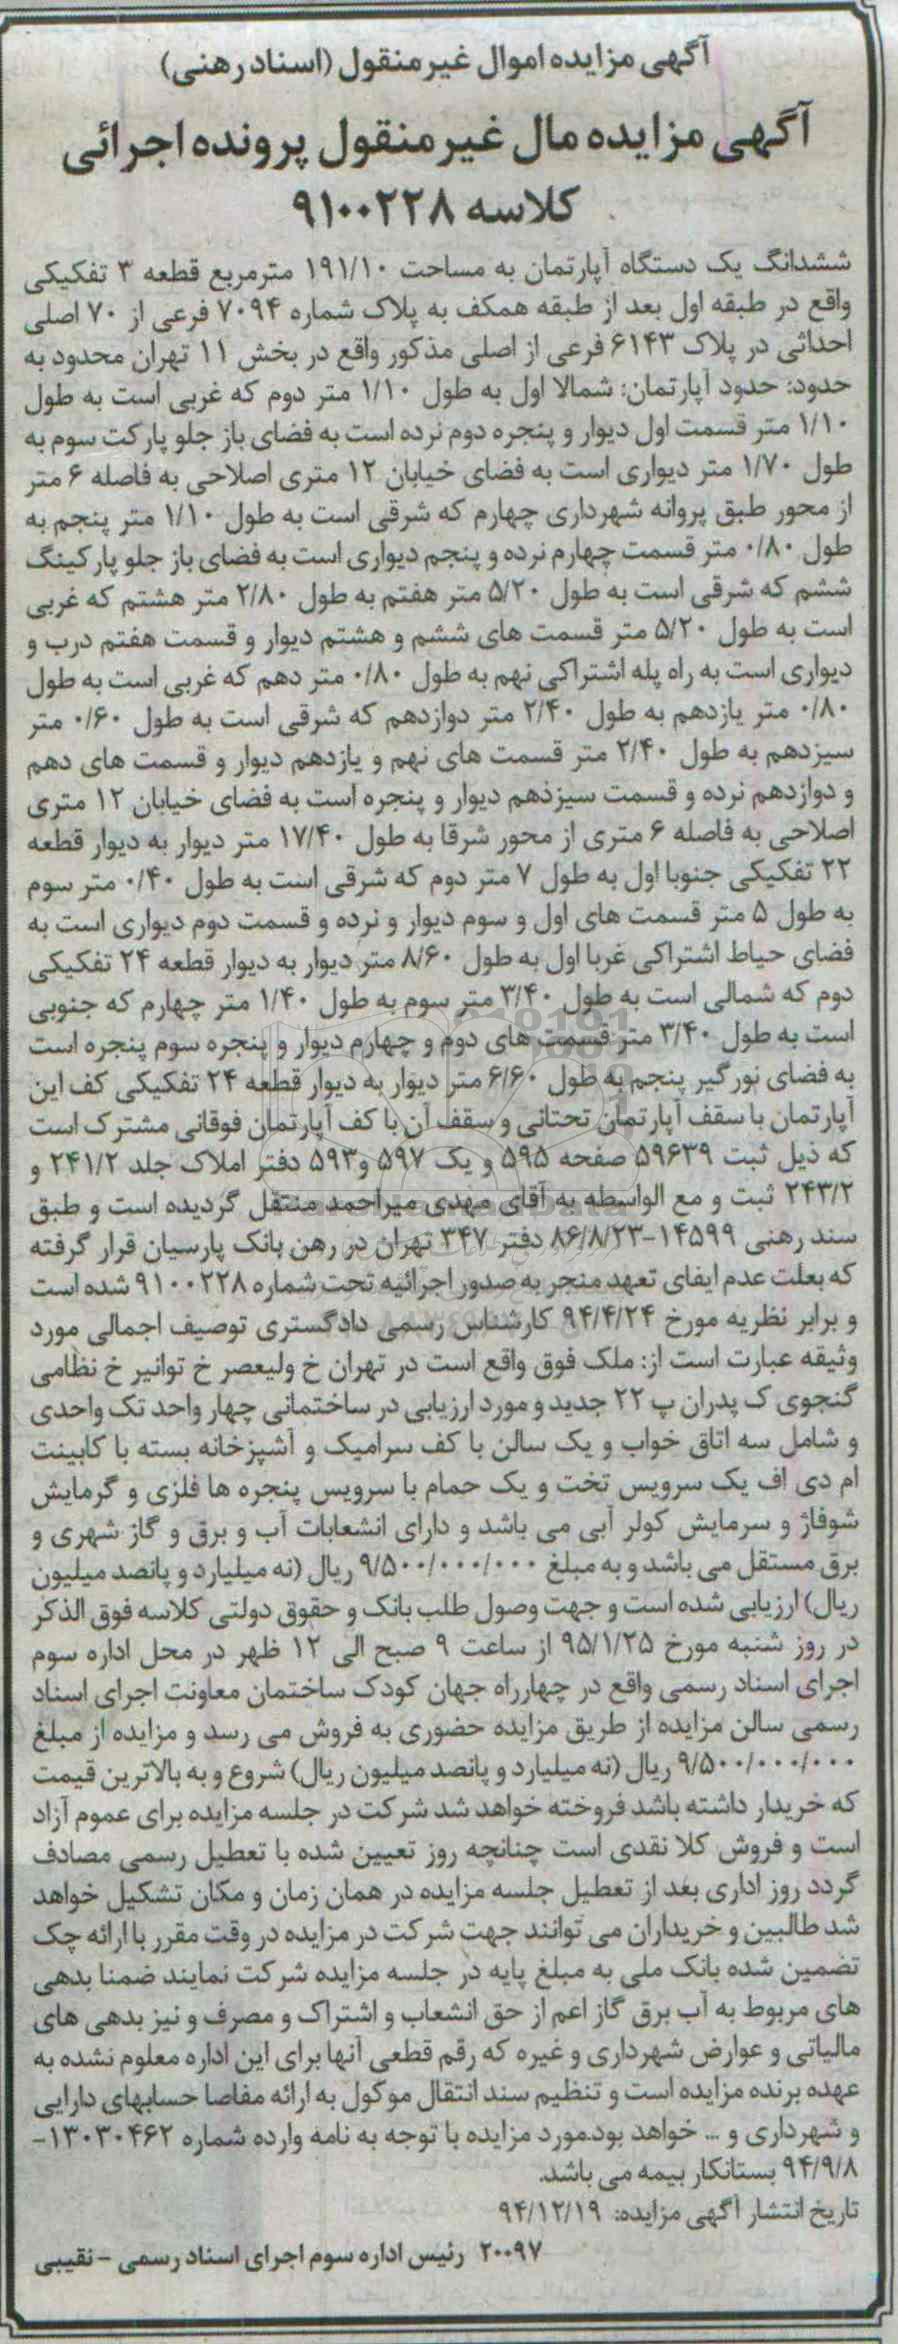 آگهی مزایده اموال غیر منقول (اسناد رهنی)
آگهی مزایده مال غیر منقول پرونده اجرائی
کلاسه ۹۱۰۰۲۲۸
ششدانگ یک دستگاه آپارتمان به مساحت ۱۹۱/۱۰ مترمربع قطعه ۳ تفکیکی
واقع در طبقه اول بعد از طبقه همکف به پلاک شماره ۷۰۹۴ فرعی از ۷۰ اصلی
احداثی در پلاک ۶۱۴۳ فرعی از اصلی مذکور واقع در بخش ۱۱ تهران محدود به
حدود: حدود آپارتمان: شمالا اول به طول ۱/۱۰ متر دوم که غربی است به طول
۱/۱۰ متر قسمت اول دیوار و پنجره دوم نرده است به فضای باز جلو پارکت سوم به
طول ۱/۷۰ متر دیواری است به فضای خیابان ۱۲ متری اصلاحی به فاصله ۶ متر
از محور طبق پروانه شهرداری چهارم که شرقی است به طول ۱/۱۰ متر پنجم به
طول ۰/۸۰ متر قسمت چهارم نرده و پنجم دیواری است به فضای باز جلو پارکینگ
ششم که شرقی است به طول ۵/۲۰ متر هفتم به طول ۲/۸۰ متر هشتم که غربی
است به طول ۵/۲۰ متر قسمت های ششم و هشتم دیوار و قسمت هفتم درب و
دیواری است به راه پله اشتراکی نهم به طول ۰/۸۰ متر دهم که غربی است به طول
۰/۸۰ متر یازدهم به طول ۲/۴۰ متر دوازدهم که شرقی است به طول ۰/۶۰ متر
سیزدهم به طول ۲/۴۰ متر قسمت های نهم و یازدهم دیوار و قسمت های دهم
و دوازدهم نرده و قسمت سیزدهم دیوار و پنجره است به فضای خیابان ۱۲ متری
اصلاحی به فاصله ۶ متری از محور شرقا به طول ۱۷/۴۰ متر دیوار به دیوار قطعه
۲۲ تفکیکی جنوبا اول به طول ۷ متر دوم که شرقی است به طول ۰/۴۰ متر سوم
به طول ۵ متر قسمت های اول و سوم دیوار و نرده و قسمت دوم دیواری است به
فضای حیاط اشتراکی غربا اول به طول ۸/۶۰ متر دیوار به دیوار قطعه ۲۴ تفکیکی
دوم که شمالی است به طول ۳/۴۰ متر سوم به طول ۱/۴۰ متر چهارم که جنوبی
است به طول ۳/۴۰ متر قسمت های دوم و چهارم دیوار و پنجره سوم پنجره است
به فضای نورگیر پنجم به طول ۶/۶۰ متر دیوار به دیوار قطعه ۲۴ تفکیکی کف این
آپارتمان با سقف آپارتمان تحتانی و سقف آن با کف آپارتمان فوقانی مشترک است
که ذیل ثبت ۵۹۶۳۹ صفحه ۵۹۵ و یک ۵۹۷ و۵۹۳ دفتر املاک جلد ۲۴۱/۲ و
۲۴۳/۲ ثبت و مع الواسطه به آقای مهدی میراحمد منتقل گردیده است و طبق
سند رهنی ۱۴۵۹۹-۸۶/۸/۲۳ دفتر ۳۴۷ تهران در رهن بانک پارسیان قرار گرفته
که بعلت عدم ایفای تعهد منجر به صدور اجرائیه تحت شماره ۹۱۰۰۲۲۸ شده است
و برابر نظریه مورخ ۹۴/۴/۲۴ کارشناس رسمی دادگستری توصیف اجمالی مورد
وثیقه عبارت است از: ملک فوق واقع است در تهران خ ولیعصر خ توانیر خ نظامی
گنجوی ک پدران پ ۲۲ جدید و مورد ارزیابی در ساختمانی چهار واحد تک واحدی
و شامل سه اتاق خواب و یک سالن با کف سرامیک و آشپزخانه بسته با کابینت
ام دی اف یک سرویس تخت و یک حمام با سرویس پنجره ها فلزی و گرمایش
شوفاژ و سرمایش کولر آبی می باشد و دارای انشعابات آب و برق و گاز شهری و
برق مستقل می باشد و به مبلغ ۹/۵۰۰/۰۰۰/۰۰۰ ریال (نه میلیارد و پانصد میلیون
ریال) ارزیابی شده است و جهت وصول طلب بانک و حقوق دولتی کلاسه فوق الذکر
در روز شنبه مورخ ۹۵/۱/۲۵ از ساعت ۹ صبح الی ۱۲ ظهر در محل اداره سوم
اجرای اسناد رسمی واقع در چهارراه جهان کودک ساختمان معاونت اجرای اسناد
رسمی سالن مزایده از طریق مزایده حضوری به فروش می رسد و مزایده از مبلغ
۹/۵۰۰/۰۰۰/۰۰۰ ریال (نه میلیارد و پانصد میلیون ریال) شروع و به بالاترین قیمت
که خریدار داشته باشد فروخته خواهد شد شرکت در جلسه مزایده برای عموم آزاد
است و فروش کلا نقدی است چنانچه روز تعیین شده با تعطیل رسمی مصادف
گردد روز اداری بعد از تعطیل جلسه مزایده در همان زمان و مکان تشکیل خواهد
شد طالبین و خریداران می توانند جهت شرکت در مزایده در وقت مقرر با ارائه چک
تضمین شده بانک ملی به مبلغ پایه در جلسه مزایده شرکت نمایند ضمنا بدهی
های مربوط به آب برق گاز اعم از حق انشعاب و اشتراک و مصرف و نیز بدهی های
مالیاتی و عوارض شهرداری و غیره که رقم قطعی آنها برای این اداره معلوم نشده به
عهده برنده مزایده است و تنظیم سند انتقال موکول به ارائه مفاصا حسابهای دارایی
و شهرداری و ... خواهد بود.مورد مزایده با توجه به نامه وارده شماره ۱۳۰۳۰۴۶۲-
۹۴/۹/۸ بستانکار بیمه می باشد.
تاریخ انتشار آگهی مزایده: ۹۴/۱۲/۱۹
۲۰۰۹۷ رئیس اداره سوم اجرای اسناد رسمی - نقیبی